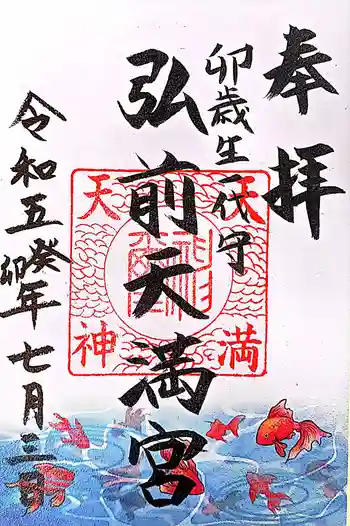 奉拝
卯歳生一代守
弘前天満宮
天満
天神
令和五癸卯年七月三日